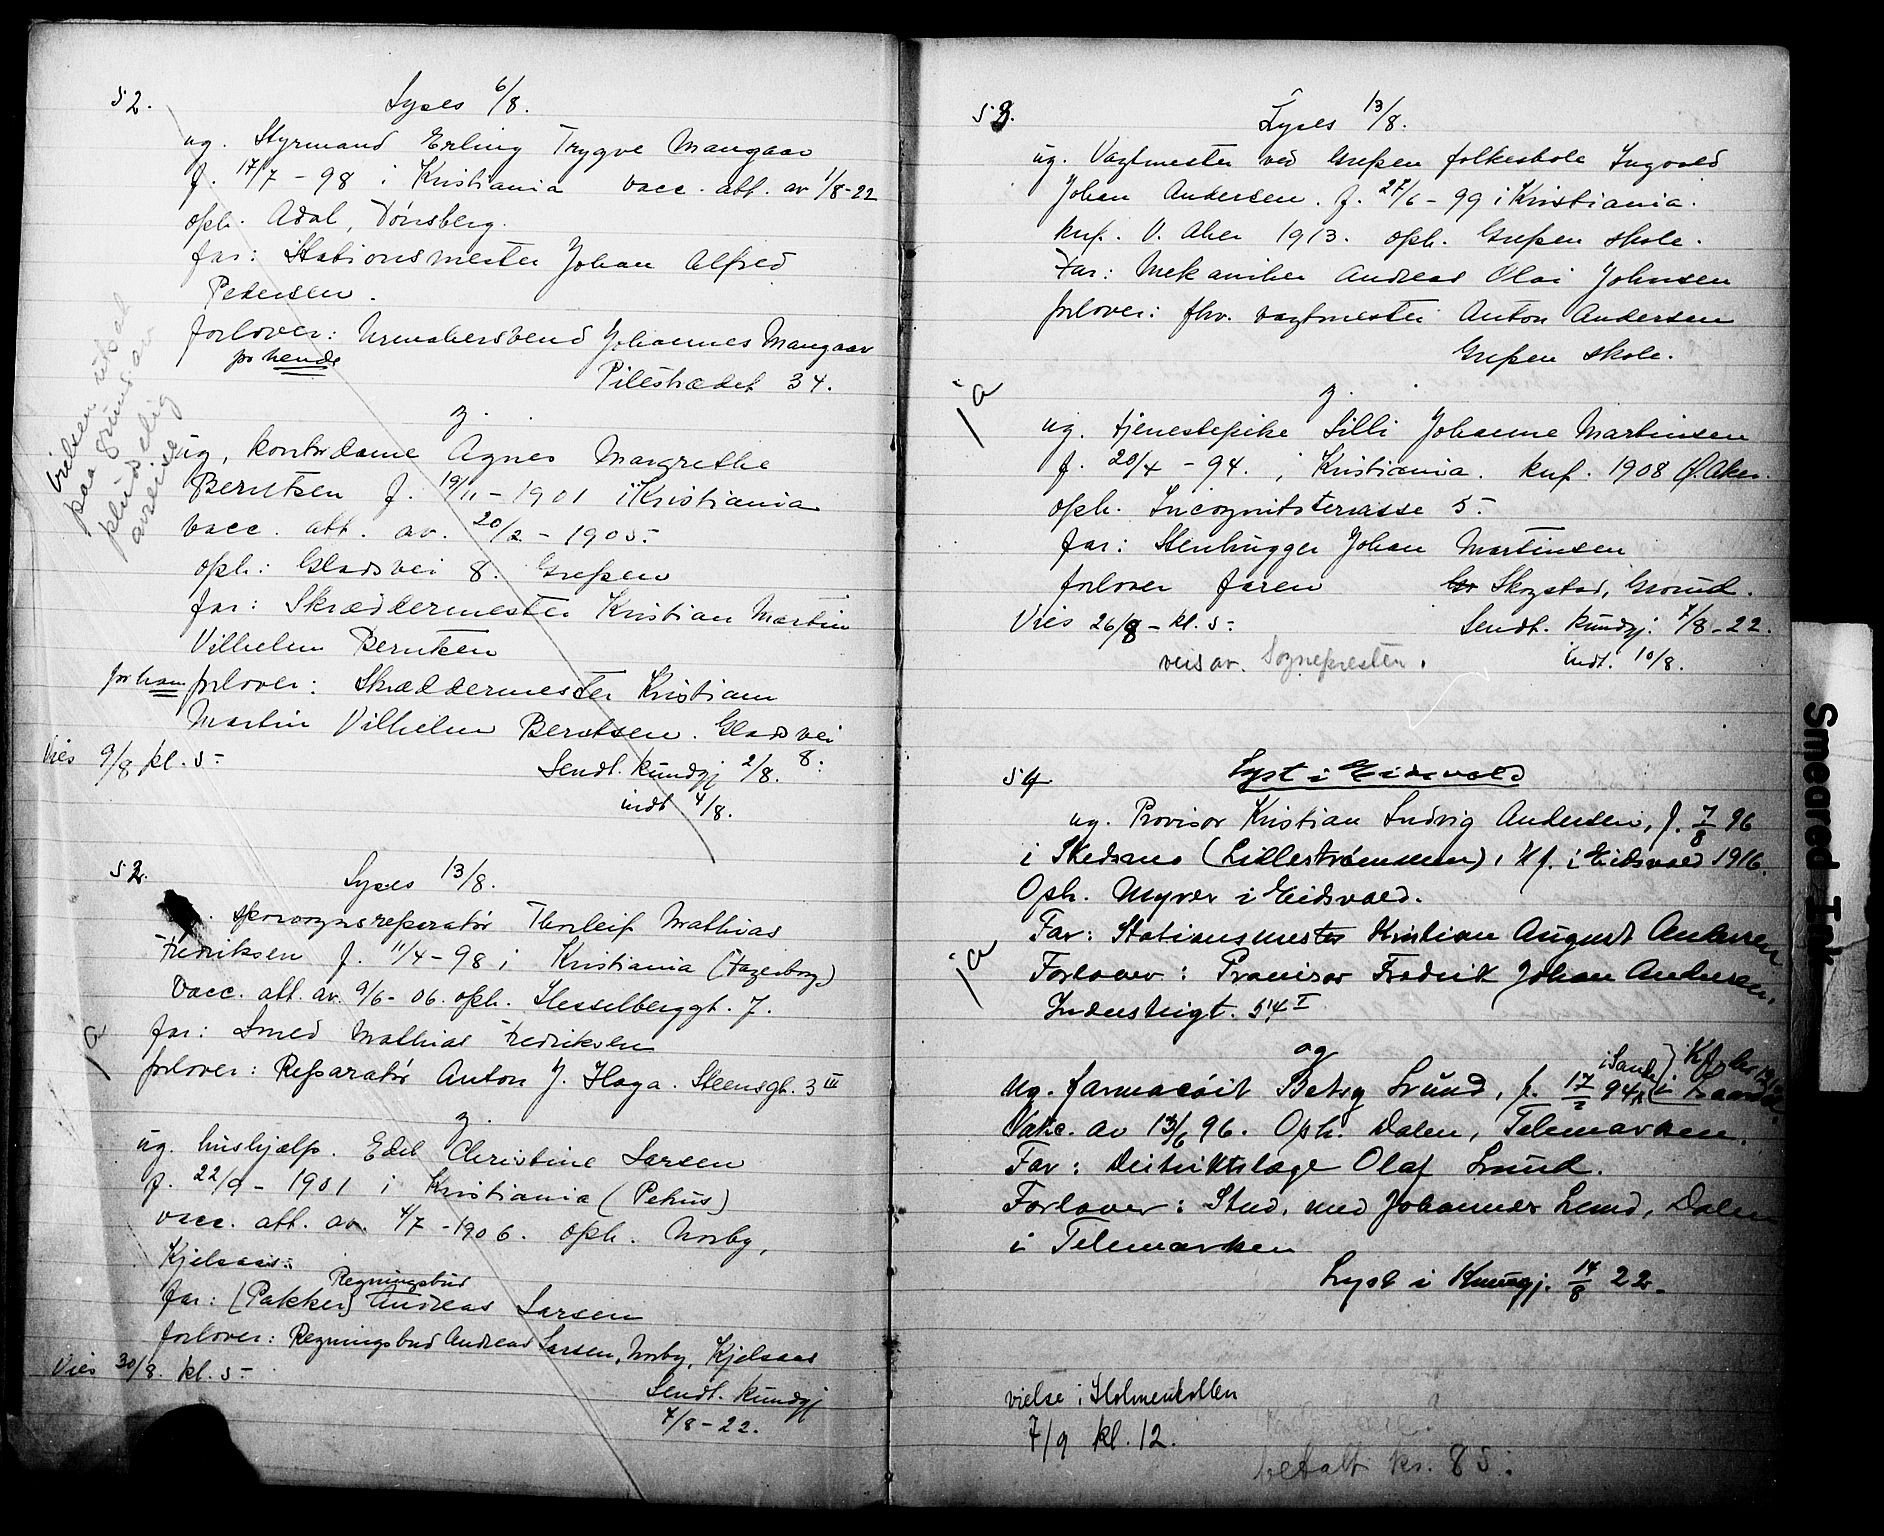 52. Lyses 6/8.
ug. Styrmand Erling Trygve Mangaar
f. 17/7 - 98 i Kristiania vacc. att. av 1/8-22
oph. Adal, Tönsberg.
far: Stationsmester Johan Alfred
Pedersen.
forlover: Urmakersvend Johannes Mangaar
for hende Pilestrædet 34.
vielsen utsat
paa grund av
pludselig
avreise
g.
ug. kontordame Agnes Margrethe
Berntsen f. 19/11 - 1901 i Kristiania
vacc. att. av. 20/2 - 1905.
oph.: Gladsvei 8. Grefsen
far: Skræddermester Kristian Martin
Vilhelm Berntsen
for ham forlover: Skræddermester Kristian
Martin Vilhelm Berntsen. Gladsvei
8.
Vies 9/8 kl. 5- Sendt. kundgj 2/8.
indt 4/8.
52. Lyses 13/8.
sporvognsreparatör Thorleif Mathias
Fredriksen f. 11/4-98 i Kristiania (Fagerborg)
Vacc. att. av. 9/6-06. oph. Hesselberggt. 7.
far: Smed Mathias Fredriksen
ja
forlover: Reparatör Anton J. Haga. Steensgt. 3 III
g.
ug. hushjælp. Edel Christine Larsen
f. 22/9 - 1901 i Kristiania (Petrus)
vacc. att. av. 4/7 - 1906. oph. Norby,
Kjelsaas.
Regningsbud
far: (Pakker) Andreas Larsen
forlover: Regningsbud Andreas Larsen, Norby, Kjelsaas
Vies 30/8. kl. 5- Sendt. kundgj
7/8-22.
53. Lyses 13/8.
ug. Vagtmester ved Grefsen folkeskole Ingvald
Johan Andersen. f. 27/6-99 i Kristiania.
knf. V. Aker 1913. oph. Grefsen skole.
Far: Mekaniker Andreas Olai Johnsen
forlover: fhv. vagtmester Anton Andersen
Grefsen skole.
ja
g.
ug. tjenestepike Lilli Johanne Martinsen
f. 20/4 - 94. i Kristiania. knf. 1908 Ø. Aker.
oph. Incognitoterrasse 5.
far: Stenhugger Johan Martinsen
forlover faren Skogstad, Grorud.
Vies 26/8 - kl. 5- Sendt. kundgj. 7/8-22.
vies av. Sognepresten. indt. 10/8.
54 Lyst i Eidsvold
ug. Provisor Kristian Ludvig Andersen, f. 7/8 96
i Skedsmo (Lillestrømmen), Kf. i Eidsvold 1916.
Oph. Myrer i Eidsvold.
Far: Stationsmester Kristian August Andersen
ja
Forlover: Provisor Fredrik Johan Andersen,
Industrigt. 54 I
og
i Sande Kf.
ug. farmacöit Betsy Lund, f. 17/2 94
Vakc. av 13/6 96. Oph. Dalen, Telemarken.
Far: Distriktslæge Olaf Lund.
Forlover: Stud. med Johannes Lund, Dalen
i Telemarken
Lyst i Kundgj. 14/8 22.
vielse i Holmenkollen
7/9 kl. 12.
betalt kr. 85.
Smeared Ink